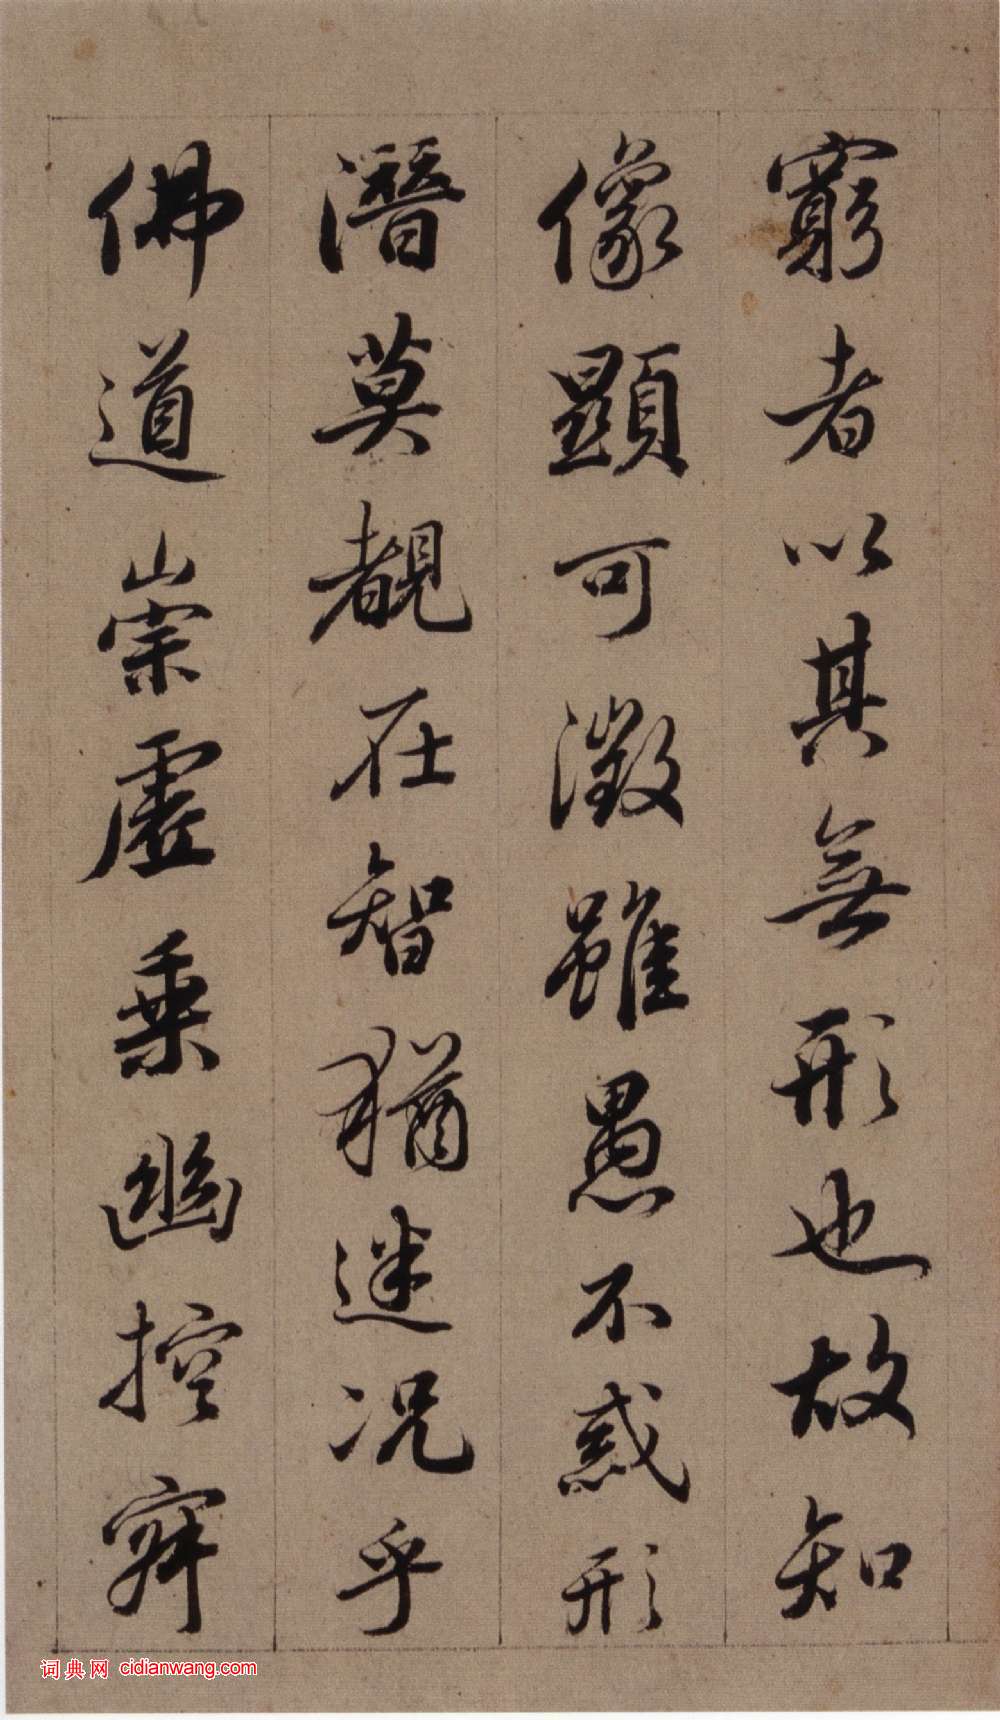 窮者以其無形也故知
像顯可徵雖愚不惑形
潛莫覩在智猶迷况乎
佛道崇虛乗幽控寂
词典网 cidianwang.com